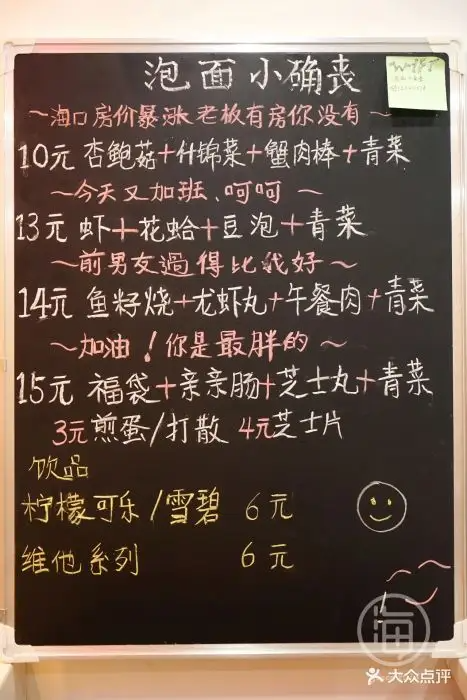 泡面小确丧
～海口房价暴涨 老板有房你没有～
10元 杏鲍菇+什锦菜+蟹肉棒+青菜
～今天又加班、呵呵～
13元 虾+花蛤+豆泡+青菜
～前男友過得比我好～
14元 鱼籽烧+龙虾丸+午餐肉+青菜
～加油！你是最胖的～
15元 福袋+亲亲肠+芝士丸+青菜
3元煎蛋/打散 4元芝士片
饮品
柠檬可乐/雪碧 6元
维他系列 6元
海
大众点评